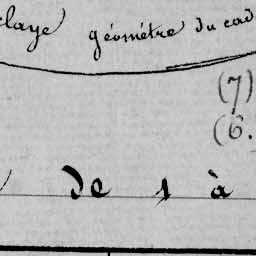 géomètre du cad
(7)
(6.
de 1 à